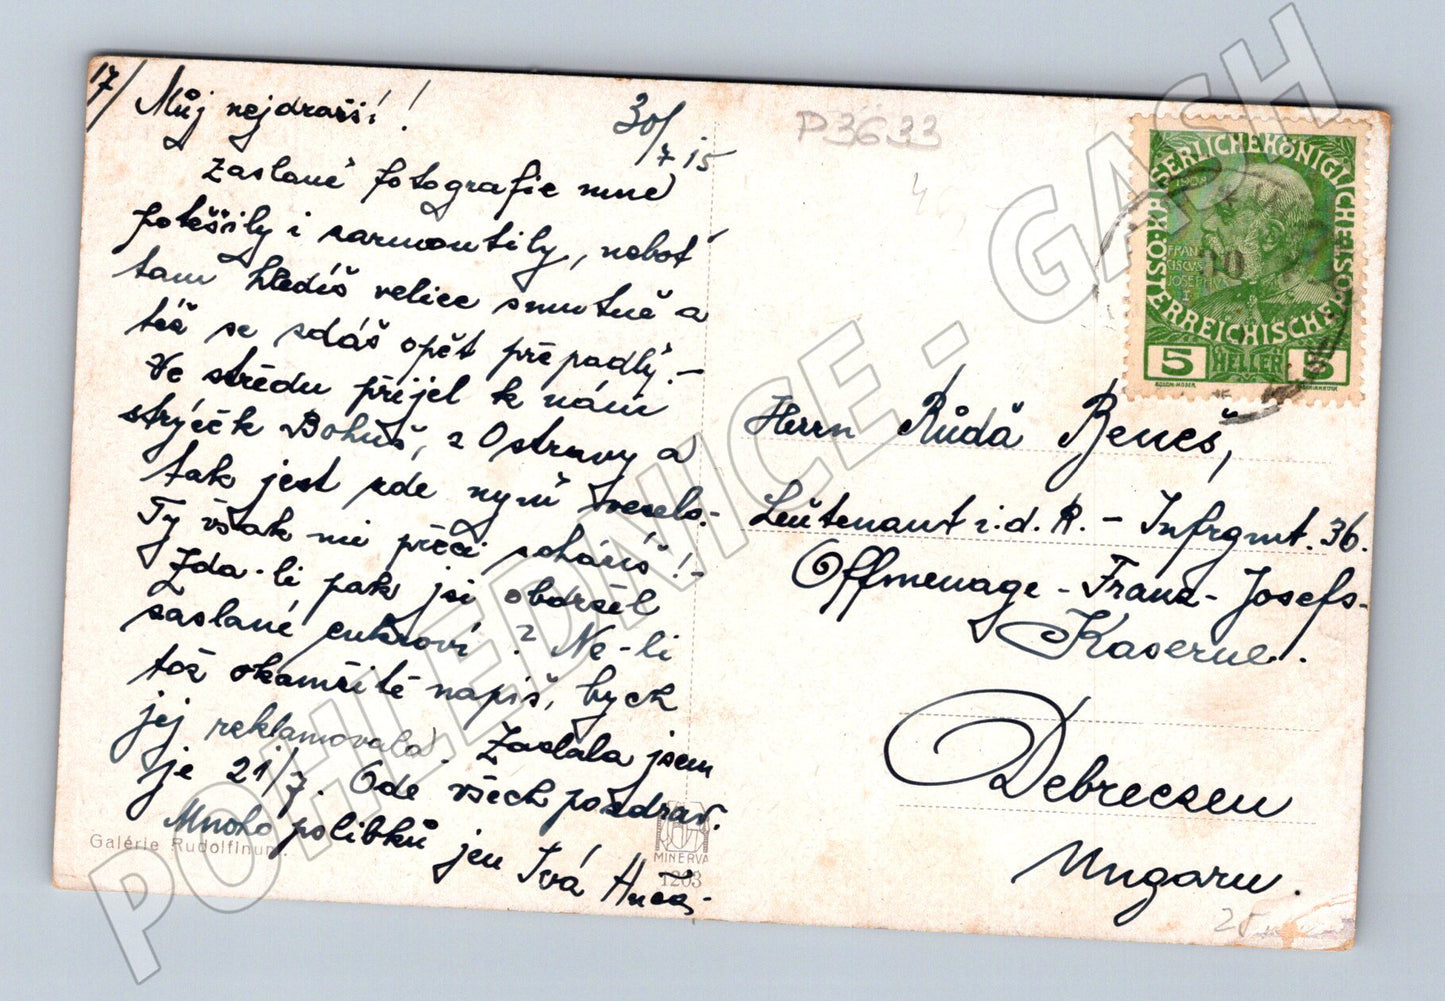 17/ Můj nejdražší!
30/7 15
Zaslané fotografie mne
potěšily i zarmoutily, neboť
tam hledíš velice smutně a
též se zdáš opět přepadlý.-
Ve středu přijel k nám
strýček Bohuš, z Ostravy a
tak jest zde nyní veselo.-
Ty však mi přeci scháníš!-
Zda-li pak jsi obdržel
zaslané cukroví? Ne-li
tož okamžitě napiš, bych
jej reklamovala. Zaslala jsem
je 21/7. Ode všech pozdrav.
Mnoho polibků jen Tvá
Galérie Rudolfinum.
MINERVA
1203
P3633
4
KAISERLICHE KÖNIGLICHE
ISO. ÖSTERREICHISCHE
1908
FRAN
CISCUS
JOSEPHUS
I
5 HELLER 5
KOLOM. MOSER
Herrn Růdă Beneš,
Leutenant i. d. R. - Infrgmt. 36.
Offmenage - Franz-Josefs-
Kaserne.
Debreczen
Ungarn.
25
POHLEDNICE - GASH